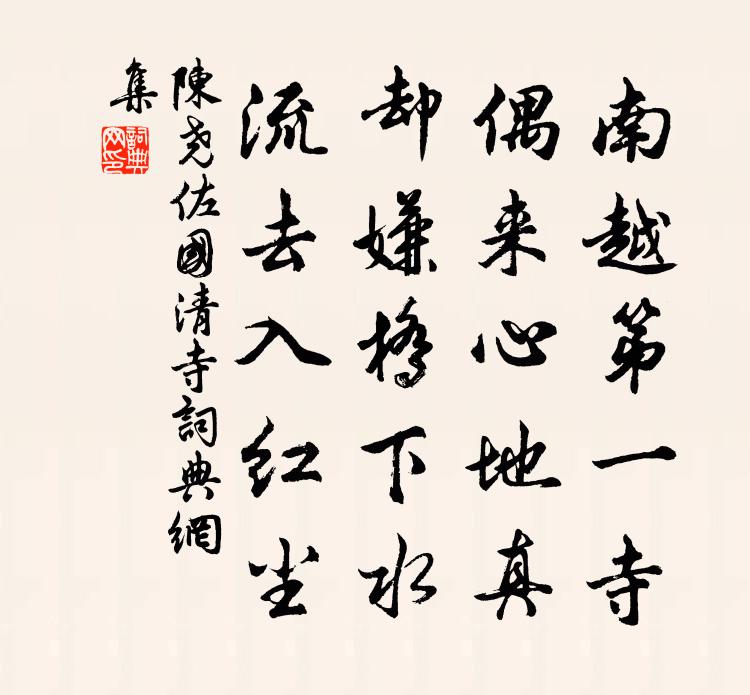 南越第一寺
偶来心地真
却嫌橋下水
流去入红尘
陳尧佐國清寺詞典網
集
詞典网印